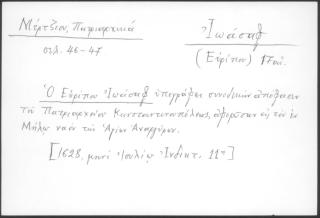 Μέρτζιου, Πατριαρχικά
σελ. 46-47
Ἰωάσαφ
(Εὐρίπου) 17 αἰ.
Ὁ Εὐρίπου Ἰωάσαφ ὑπογράφει συνοδικὴν ἀπόφασιν
τοῦ Πατριαρχείου Κωνσταντινουπόλεως, ἀφορῶσαν εἰς τὸν ἐν
Μήλῳ ναὸν τῶν Ἁγίων Ἀναργύρων.
[1628, μηνὶ Ἰουλίῳ Ἰνδικτ. 11ης]